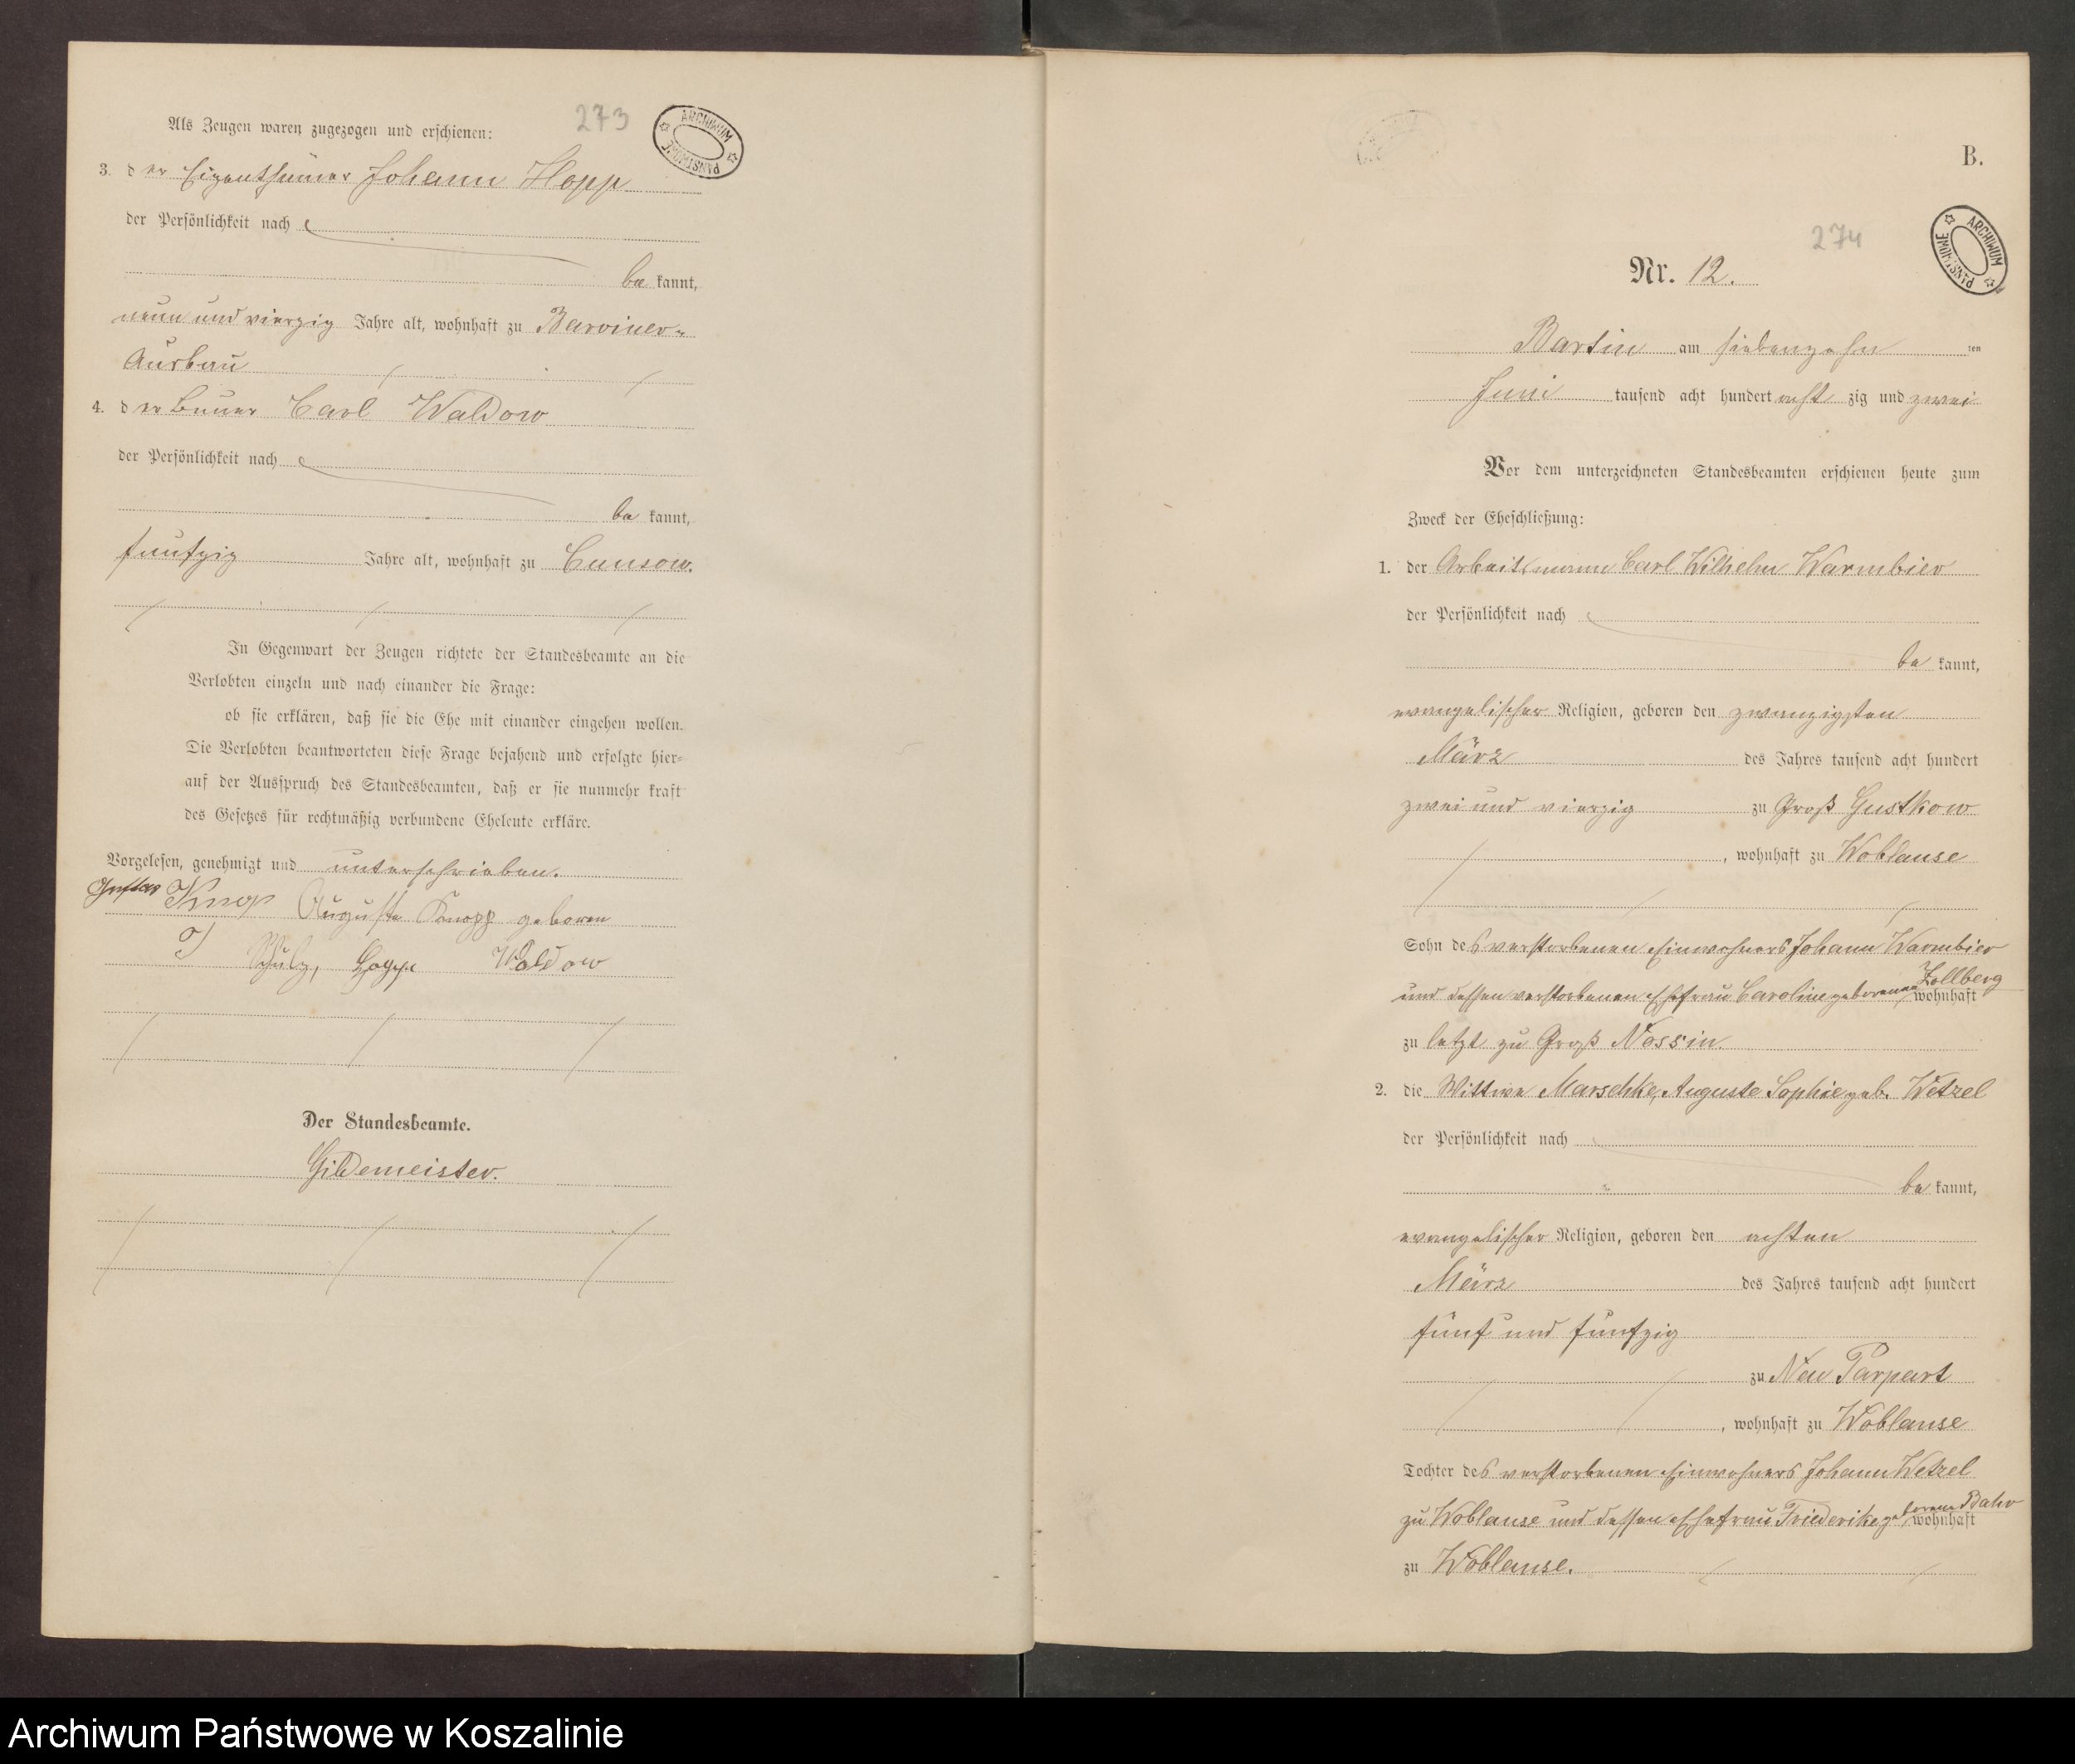 273
ARCHIWUM PAŃSTWOWE
Als Zeugen waren zugezogen und erschienen:
3. der Eigenthümer Johann Hopp
der Persönlichkeit nach
be kannt,
neun und vierzig Jahre alt, wohnhaft zu Barviner-
Ausbau
4. der Bauer Carl Waldow
der Persönlichkeit nach
be kannt,
funfzig Jahre alt, wohnhaft zu Cunsow.
In Gegenwart der Zeugen richtete der Standesbeamte an die
Verlobten einzeln und nach einander die Frage:
ob sie erklären, daß sie die Ehe mit einander eingehen wollen.
Die Verlobten beantworteten diese Frage bejahend und erfolgte hier-
auf der Ausspruch des Standesbeamten, daß er sie nunmehr kraft
des Gesetzes für rechtmäßig verbundene Eheleute erkläre.
Vorgelesen, genehmigt und unterschrieben.
Gustav Knop Auguste Knopp geboren
Schulz, Hopp Waldow
Der Standesbeamte.
Gildemeister.
B.
274
ARCHIWUM PAŃSTWOWE
Nr. 12.
Bartin am siebenzehn ten
Juni tausend acht hundert acht zig und zwei
Vor dem unterzeichneten Standesbeamten erschienen heute zum
Zweck der Eheschließung:
1. der Arbeitsmann Carl Wilhelm Warmbier
der Persönlichkeit nach
be kannt,
evangelischer Religion, geboren den zwanzigsten
März des Jahres tausend acht hundert
zwei und vierzig zu Groß Gustkow
, wohnhaft zu Woblanse
Sohn des verstorbenen Einwohners Johann Warmbier
und dessen verstorbenen Ehefrau Caroline geborene Zollberg wohnhaft
zu letzt zu Groß Nossin.
2. die Wittwe Marschke, Auguste Sophie geb. Wetzel
der Persönlichkeit nach
be kannt,
evangelischer Religion, geboren den achten
März des Jahres tausend acht hundert
fünf und funfzig
zu Neu Parpart
, wohnhaft zu Woblanse
Tochter des verstorbenen Einwohners Johann Wetzel
zu Woblanse und dessen Ehefrau Friederike geborene Bahr wohnhaft
zu Woblanse.
Archiwum Państwowe w Koszalinie